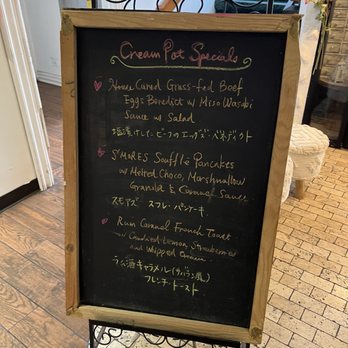 Cream Pot Specials
House Cured Grass-fed Beef
Eggs Benedict w/ Miso Wasabi
Sauce w/ Salad
塩漬けしたビーフのエッグベネディクト
S'MORES Soufflé Pancakes
w/ Melted Choco, Marshmallow
Granola & Caramel Sauce
スモアズ スフレパンケーキ
Rum Caramel French Toast
w/ Candied Lemon, Strawberries
and Whipped Cream
ラム酒キャラメル(サバラン風)
フレンチトースト